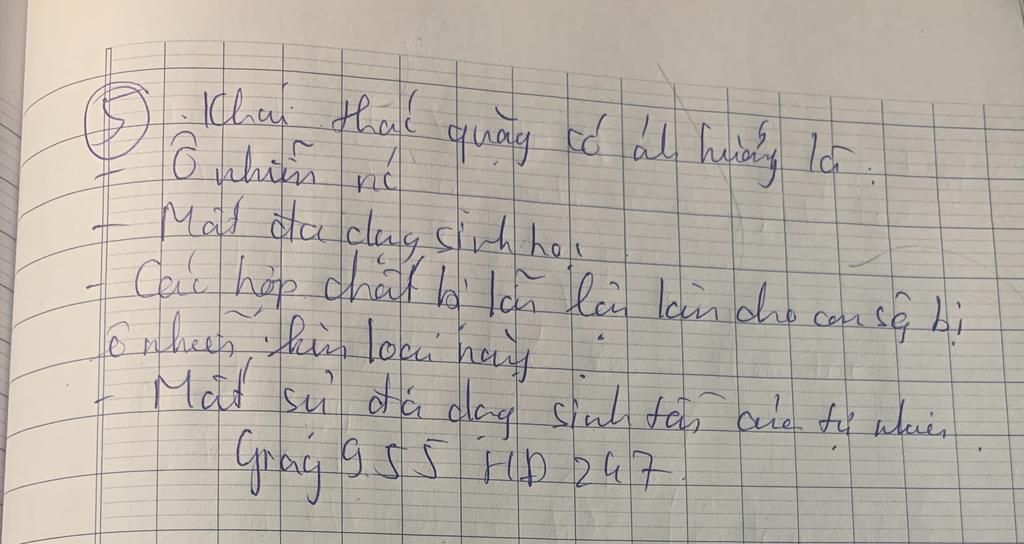 ⑤. Khai thác quặg có ảh hưởng là:
- Ô nhiễm nc
- Mất đa dạg sinh học
- Các hợp chất bị lẫn lại làm cho con sôg bị
ô nhiễm kim loại nặg
- Mất sự đa dạg sinh tồn của tự nhiên
955 HD 247